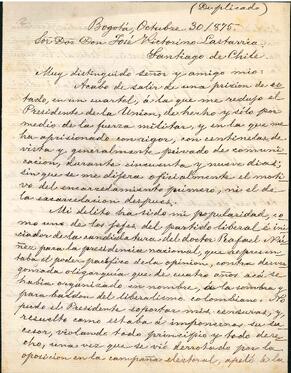 (Duplicado)
Bogotá, Octubre 30/1875.
Sor Dor Don José Victorino Lastarria.
Santiago de Chile.
Muy distinguido señor y amigo mio:
Acabo de salir de una prision de es-
tado, en un cuartel, á la que me redujo el
Presidente de la Union, de hecho y sólo por
medio de la fuerza militar, y en la que me
ha aprisionado con rigor, con centinelas de
vista y generalmente privado de comuni-
cacion, durante cincuenta y nueve dias,
sin que se me dijera oficialmente el moti-
vo del encarcelamiento primero, ni el de
la excarcelacion despues.
Mi delito ha sido mi popularidad, co-
mo uno de los jefes del partido liberal é ini-
ciador de la candidatura del doctor Rafael Nú-
ñez para la presidencia nacional, que represen-
taba el poder pacífico de la opinion, contra
oligarquía que de cuatro años acá se
habia organizado en nombre, á la sombra y
para baldon del liberalismo colombiano. No
pudo el Presidente soportar mis censuras, y,
resuelto como estaba á imponernos su su-
cesor, violando todo principio y todo dere-
cho, una vez que se vió derrotado por la
oposicion en la campaña electoral, apeló á la